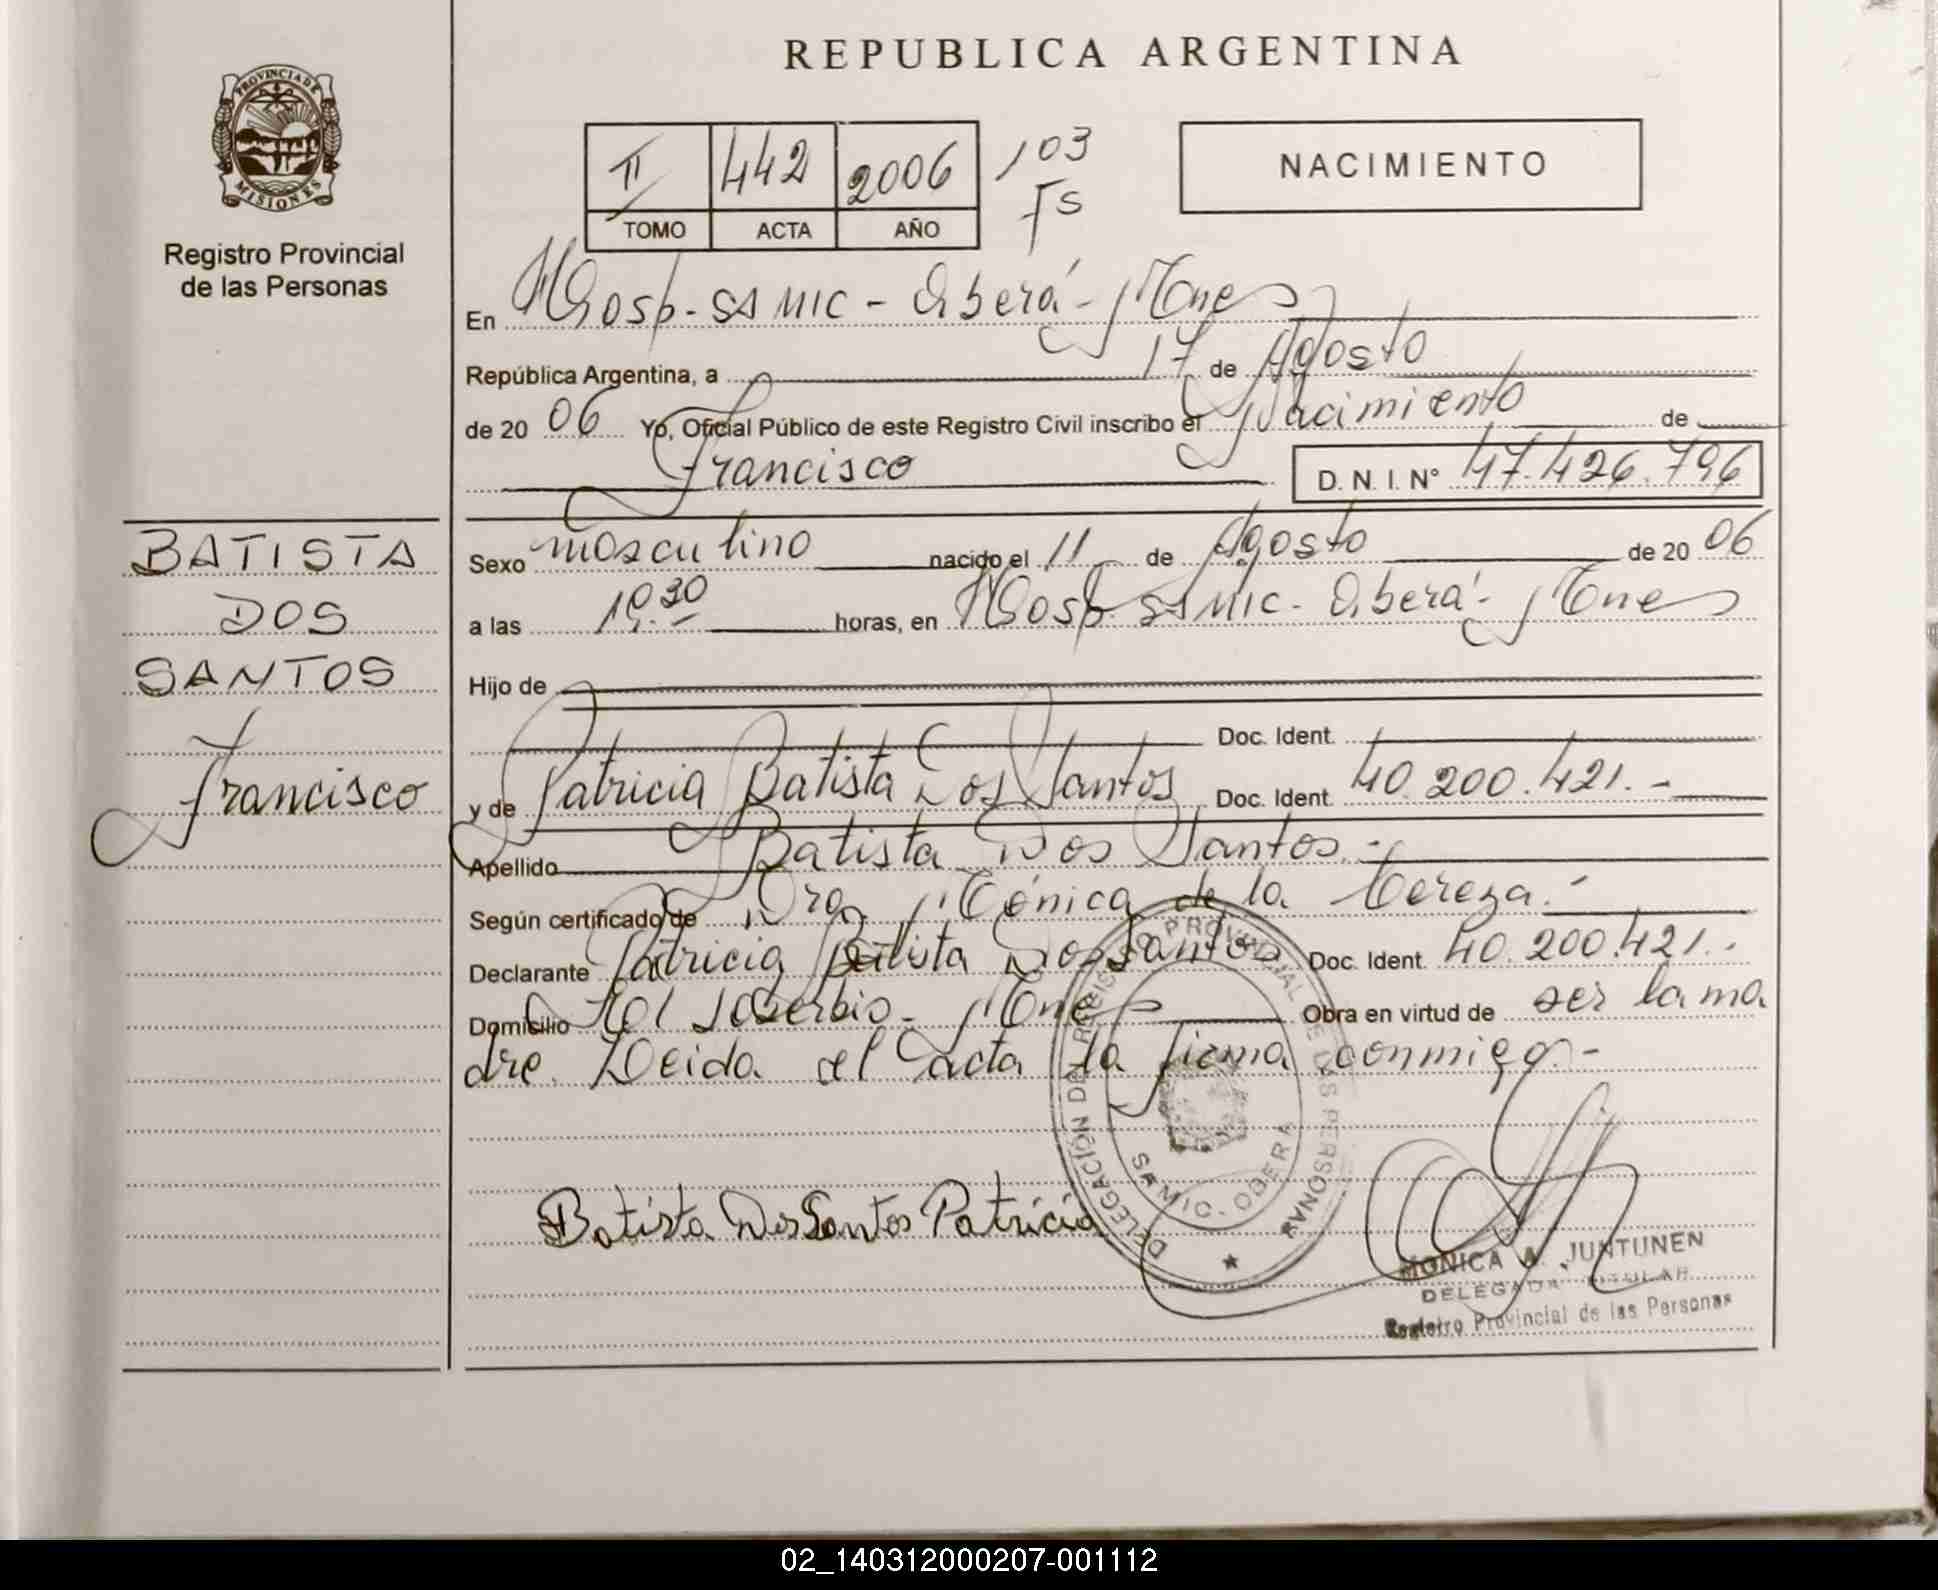 REPUBLICA ARGENTINA
PROVINCIA DE MISIONES
Registro Provincial
de las Personas
II 442 2006 103
TOMO ACTA AÑO Fs
NACIMIENTO
En Hosp. SAMIC - Oberá - Mnes
República Argentina, a 17 de Agosto
de 20 06 Yo, Oficial Público de este Registro Civil inscribo el Nacimiento de
Francisco D. N. I. N° 47.426.796
BATISTA
DOS
SANTOS
Francisco
Sexo masculino nacido el 11 de Agosto de 20 06
a las 19.30 horas, en Hosp. SAMIC - Oberá - Mnes
Hijo de
Doc. Ident.
y de Patricia Batista Dos Santos Doc. Ident. 40.200.421.-
Apellido Batista Dos Santos.-
Según certificado de Dra Mónica de la Cereza.-
Declarante Patricia Batista Dos Santos Doc. Ident. 40.200.421.-
Domicilio Soberbio - Mnes Obra en virtud de ser la ma
dre. Leida el acta la firma conmigo.-
Batista Dos Santos Patricia
DELEGACIÓN DEL REGISTRO PROVINCIAL DE LAS PERSONAS
SAMIC - OBERA
MONICA A. JUNTUNEN
DELEGADA TITULAR
Registro Provincial de las Personas
02_140312000207-001112